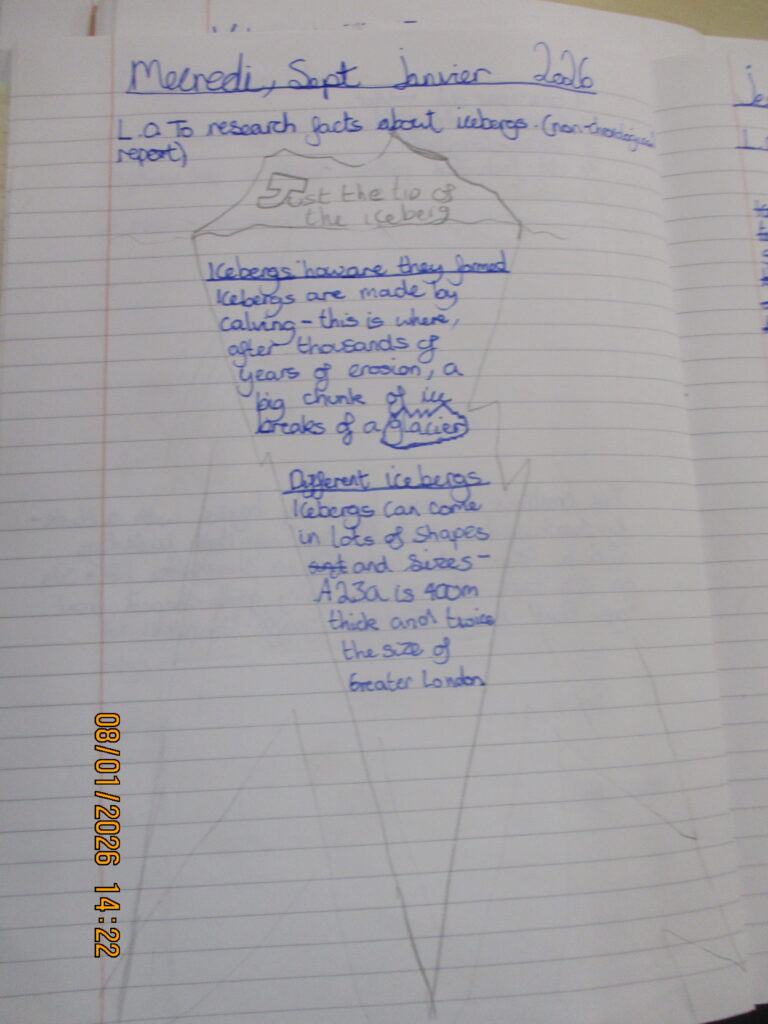 Mecredi, Sept Janvier 2026
L.O To research facts about icebergs. (non-chronological
report)
Just the tip of
the iceberg
Icebergs how are they formed
Icebergs are made by
calving - this is where,
after thousands of
years of erosion, a
big chunk of ice
breaks of a glacier
Different icebergs
Icebergs can come
in lots of shapes
and sizes -
A23a is 400m
thick and twice
the size of
Greater London
08/01/2026 14:22